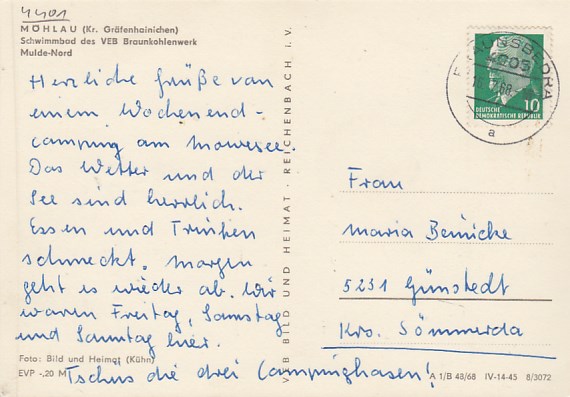 4401
MÖHLAU (Kr. Gräfenhainichen)
Schwimmbad des VEB Braunkohlenwerk
Mulde-Nord
Herzliche Grüße von
einem Wochenend-
camping am
Das Wetter und der
See sind herrlich.
Essen und Trinken
schmeckt. Morgen
geht es wieder ab. Wir
waren Freitag, Samstag
und Sonntag hier.
Tschüs die drei Campinghasen!
Foto: Bild und Heimat (Kühn)
EVP -,20 M
VEB BILD UND HEIMAT · REICHENBACH I. V.
BRAUNSBEDRA
68
a
10
DEUTSCHE
DEMOKRATISCHE REPUBLIK
Frau
Maria Beinicke
5231 Günstedt
Krs. Sömmerda
A 1/B 48/68 IV-14-45 8/3072